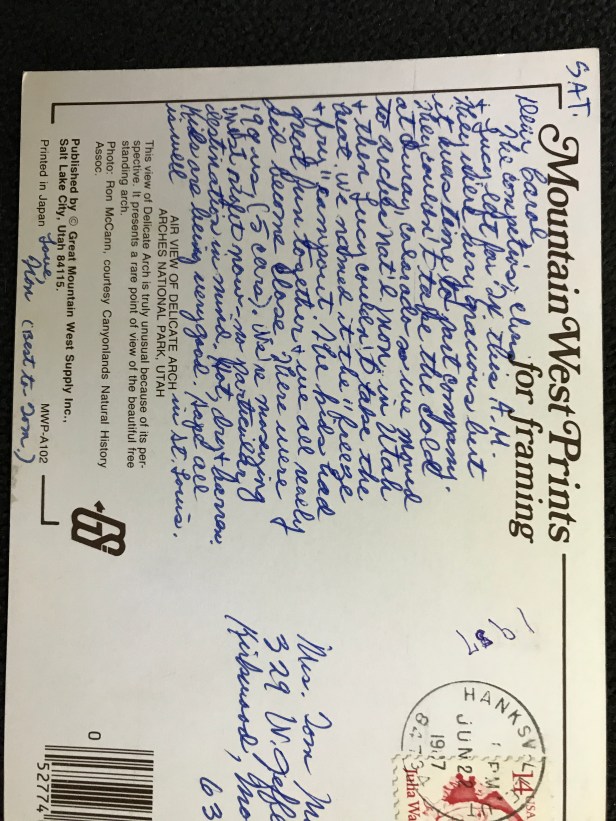 Mountain West Prints
for framing
SAT.
Dear Carol
The competing,
& Lucy left for St. this A.M.
They were very gracious but
it was time to part company.
They couldn't take the cold
at Ouray, Colorado so we moved
to arches nat'l mon in Utah
& then Lucy couldn't take the
heat. We named it the "freeze
& fry" campout. The kids had
great fun together & we all really
did become close. There were
19 of us (5 cars). We're moseying
West right now—no particular
destination in mind. Hot, dry & barren.
Kids are being very good. Hope all
is well in St. Louis.
Love
(Best to Tom)
AIR VIEW OF DELICATE ARCH
ARCHES NATIONAL PARK, UTAH
This view of Delicate Arch is truly unusual because of its per-
spective. It presents a rare point of view of the beautiful free
standing arch.
Photo: Ron McCann, courtesy Canyonlands Natural History
Assoc.
Published by © Great Mountain West Supply Inc.,
Salt Lake City, Utah 84115.
Printed in Japan
MWP-A102
GS
HANKSV
PM
JUN 22
19 7
84734
14
USA
Julia Wa
Mrs. Tom M
329 W. Jeffe
Kirkwood, Mo
63
0
52774